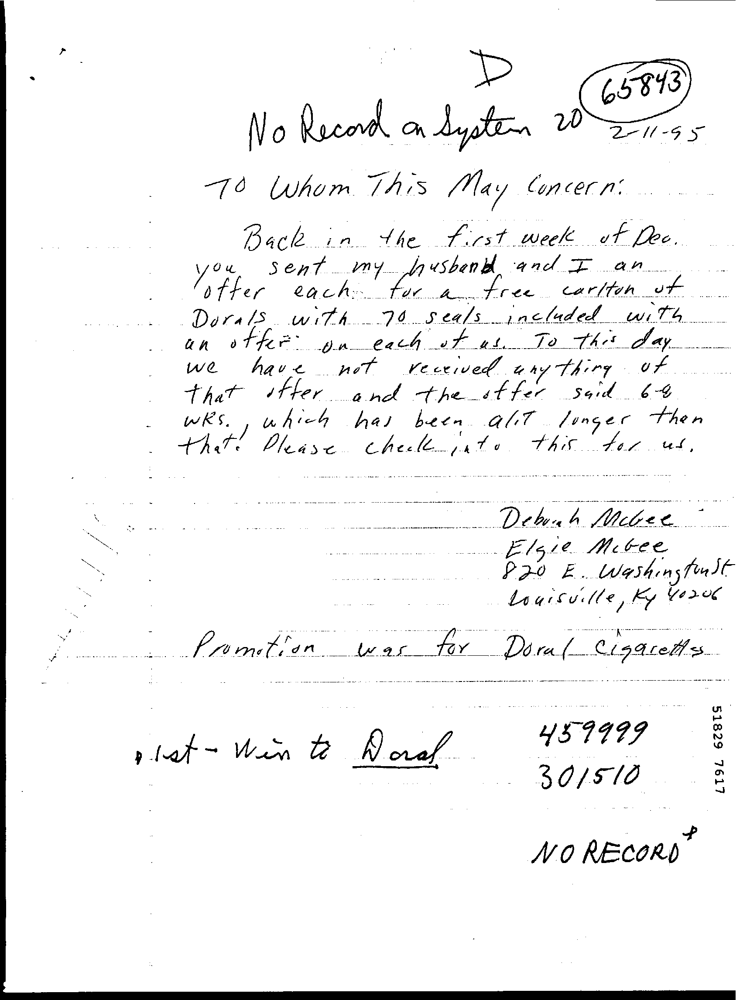 D
65843
No Record on System 20
2-11-95
To Whom This May Concern:
Back in the first week of Dec.
you sent my husband and I an
offer each for a free carlton of
Dorals with 70 seals included with
an offer on each of us. To this day
we have not received anything of
that offer and the offer said 6-8
wks., which has been alit longer then
that! Please check into this for us.
Deborah McGee
Elgie McGee
820 E. Washington St.
Louisville, Ky 40206
Promotion was for Doral Cigarettes
1st - Win to Doral
459999
301510
NO RECORD
51829 7617